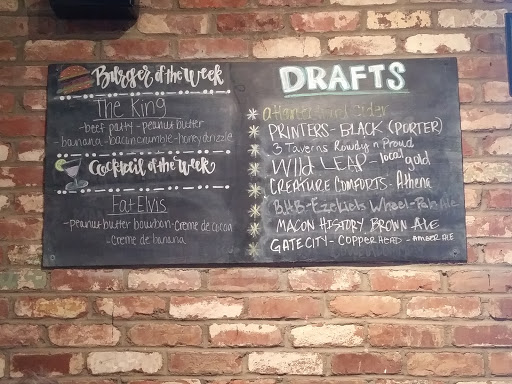 Burger of the Week
The King
-beef patty - peanut butter
-banana - bacon crumble - honey drizzle
Cocktail of the Week
Fat Elvis
-peanut butter bourbon - creme de cocoa
-creme de banana
DRAFTS
Cider
PRINTERS - BLACK (PORTER)
3 Taverns Rowdy n Proud
WILD LEAP - local gold
CREATURE COMFORTS - Athena
BHB - Ezekiels Wheel - Pale Ale
MACON HISTORY BROWN ALE
GATE CITY - COPPERHEAD - AMBER ALE